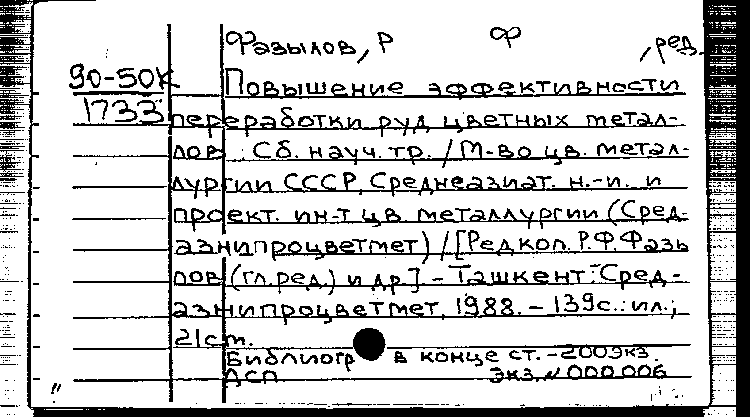 Фазылов, Р Ф , ред.
90-50К Повышение эффективности
1733 переработки руд цветных метал-
лов : Сб. науч. тр. / М-во цв. метал-
лургии СССР, Среднеазиат. н.-и. и
проект. ин-т цв металлургии (Сред-
азнипроцветмет) / [Редкол. Р.Ф.Фазы
лов (гл.ред.) и др.] - Ташкент: Сред-
азнипроцветмет, 1988. - 139с.: ил.;
21см.
Библиогр в конце ст. - 200экз.
ДСП экз. № 000006